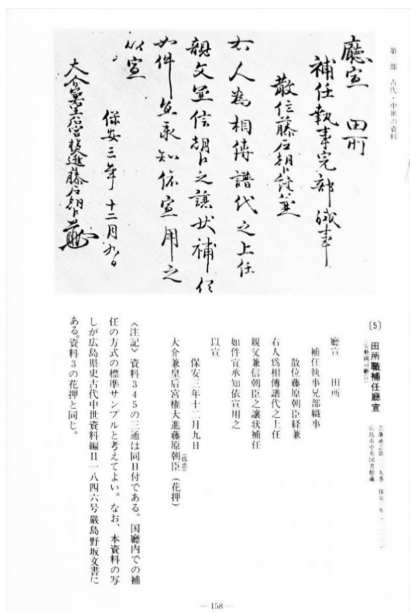 第一部 古代・中世の資料
廳宣 田所
補任執事兄部職事
散位藤原朝臣経兼
右人為相傳譜代之上任
親父兼信朝臣之譲状補任
如件宜承知依宣用之
以宣
保安三年十二月九日
大介兼皇后宮権大進藤原朝臣
(5) 田所職補任廳宣
廳宣 田所
補任執事兄部職事
散位藤原朝臣経兼
右人爲相傳譜代之上任
親父兼信朝臣之譲状補任
如件宜承知依宣用之
以宣
保安三年十二月九日
大介兼皇后宮権大進藤原朝臣(花押)
〈注記〉資料345の三通は同日付である。国廳内での補
任の方式の標準サンプルと考えてよい。なお、本資料の写
しが広島県史古代中世資料編Ⅱ一八四六号厳島野坂文書に
ある。資料3の花押と同じ。
— 158 —